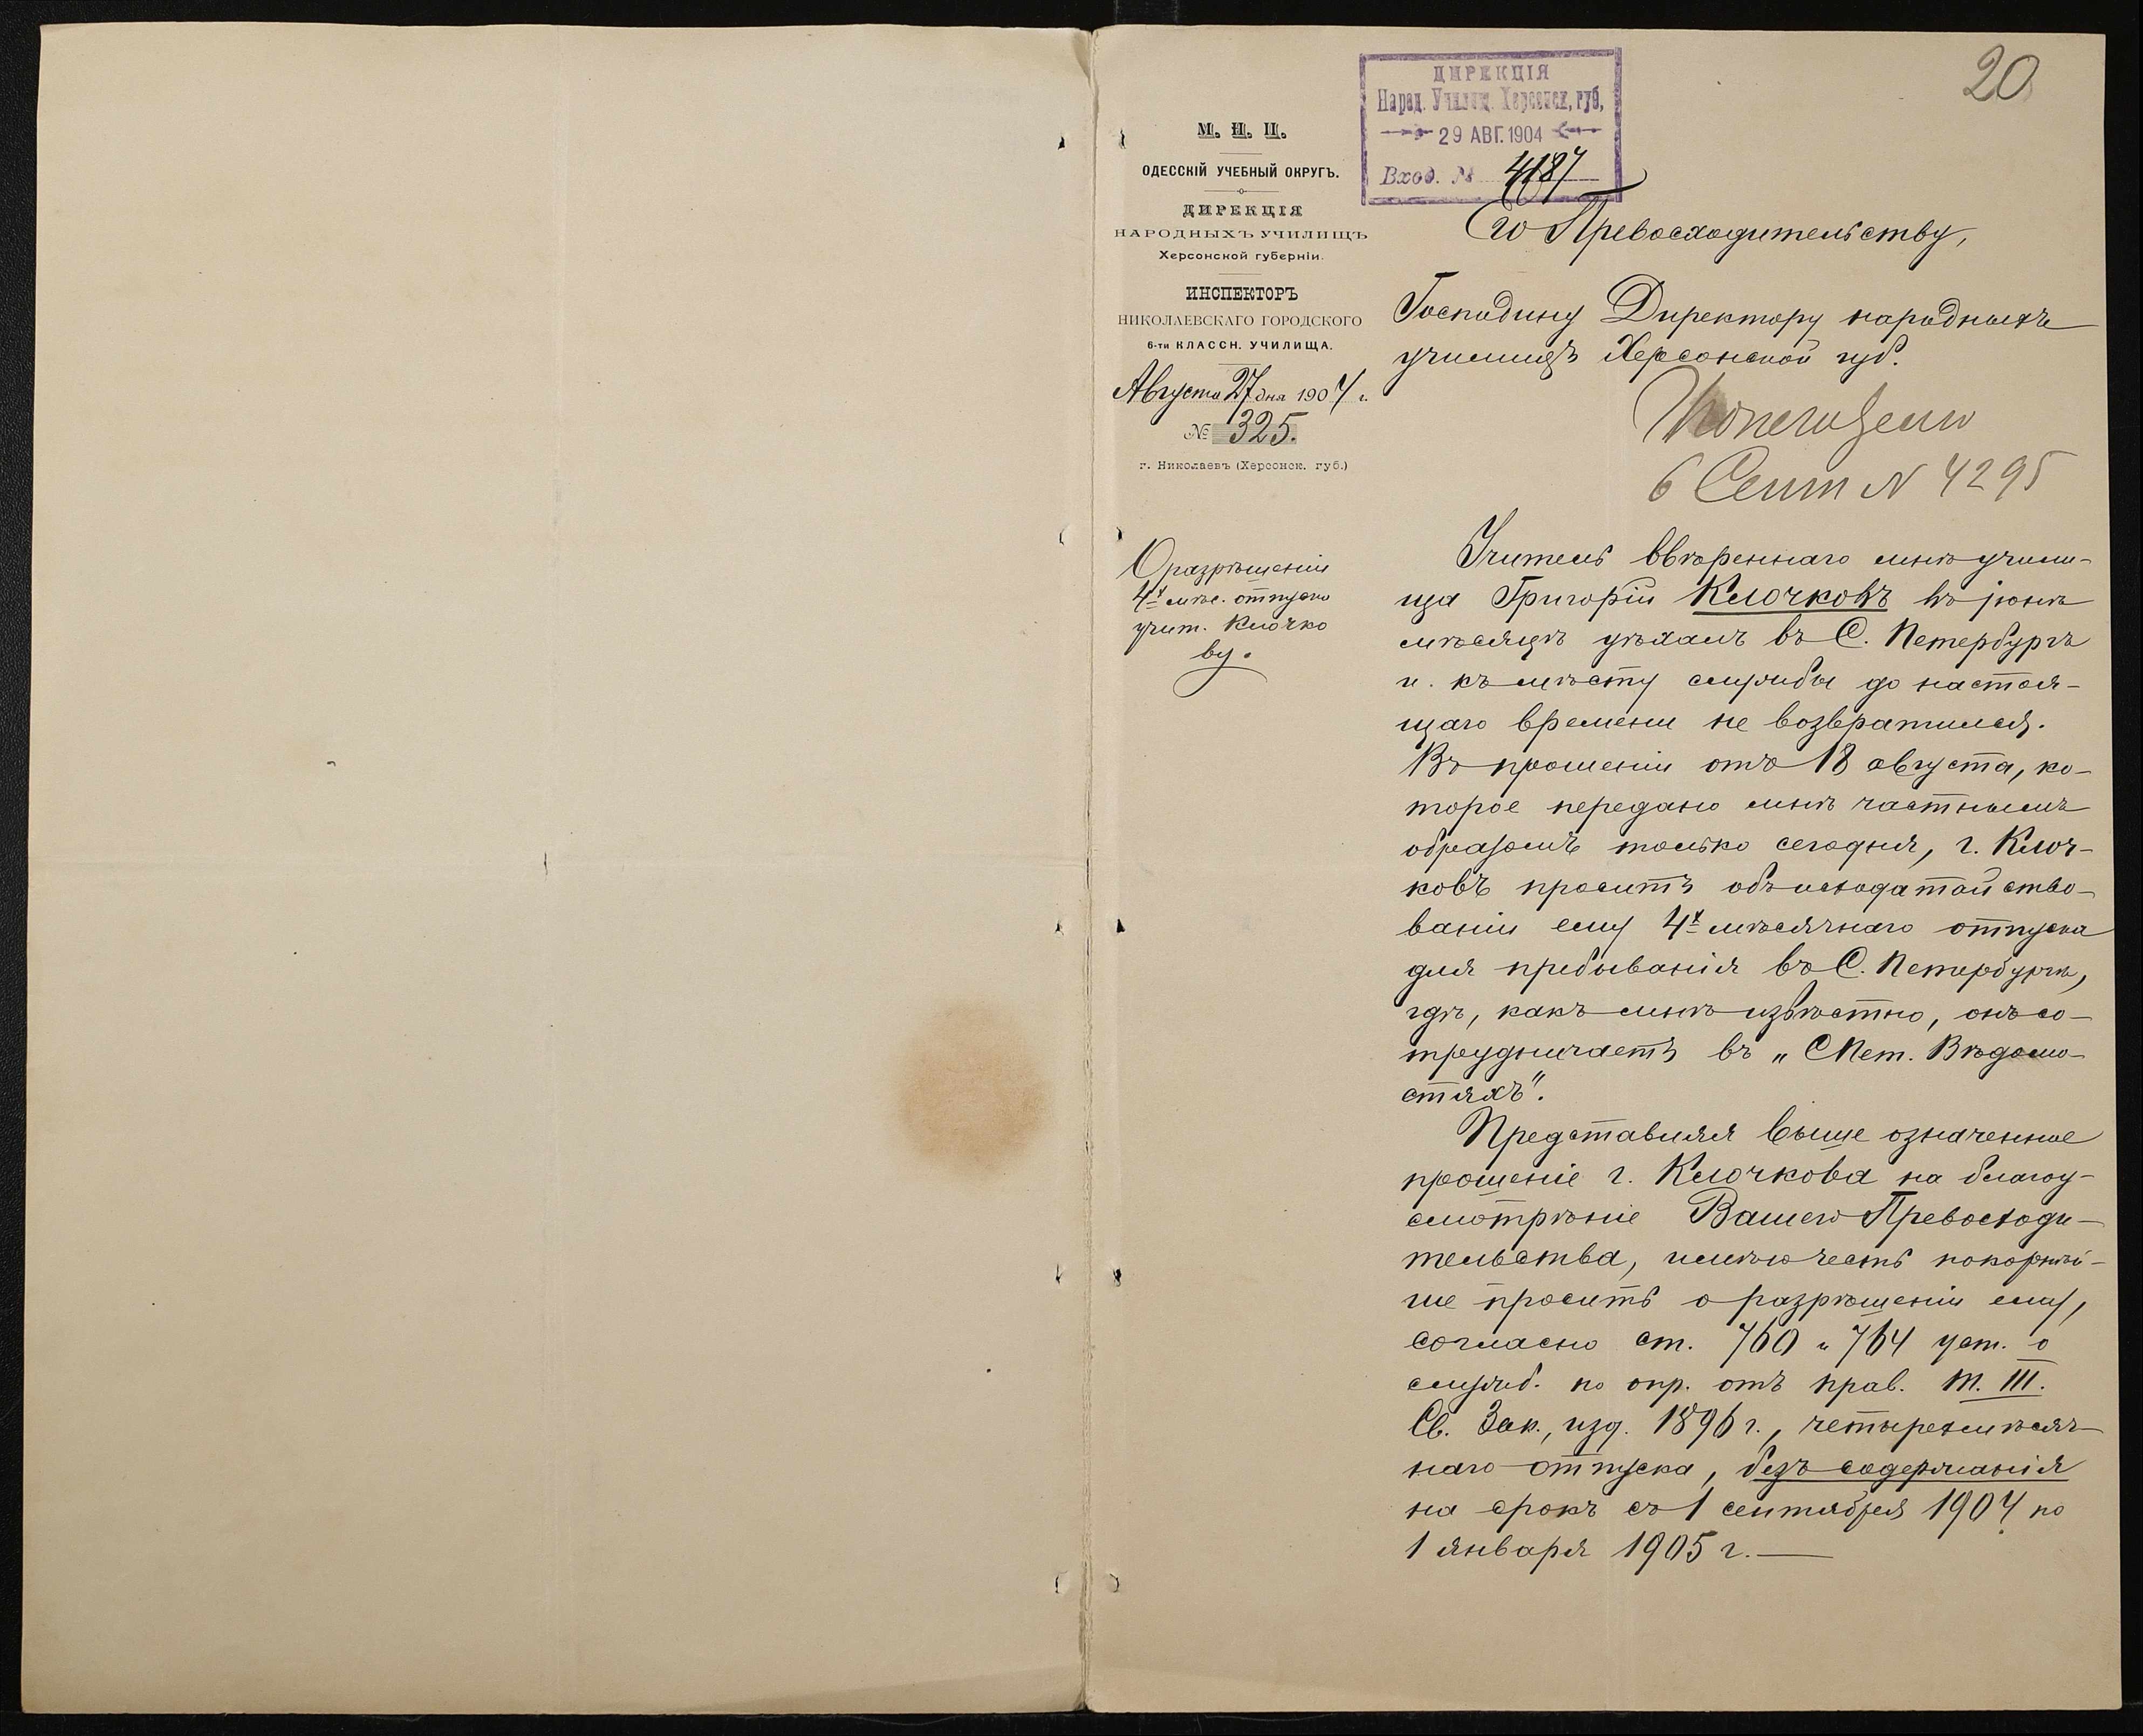 20
ДИРЕКЦІЯ
Народ. Училищ. Херсонск. губ.
29 АВГ. 1904
Вход. № 4187
М. Н. П.
ОДЕССКІЙ УЧЕБНЫЙ ОКРУГЪ.
ДИРЕКЦІЯ
НАРОДНЫХЪ УЧИЛИЩЪ
Херсонской губерніи.
ИНСПЕКТОРЪ
НИКОЛАЕВСКАГО ГОРОДСКОГО
6-ти КЛАССН. УЧИЛИЩА.
Августа 27 дня 1904 г.
№ 325.
г. Николаевъ (Херсонск. губ.)
О разрѣшеніи
4х мѣс. отпуска
учит. Клочко
ву.
Его Превосходительству,
Господину Директору народныхъ
училищъ Херсонской губ.
6 Сент N 4295
Учитель ввѣреннаго мнѣ учили-
ща Григорій Клочковъ въ іюнѣ
мѣсяцѣ уѣхалъ въ С. Петербургъ
и къ мѣсту службы до настоя-
щаго времени не возвратился.
Въ прошеніи отъ 18 августа, ко-
торое передано мнѣ частнымъ
образомъ только сегодня, г. Клоч-
ковъ проситъ объ исходатайство-
ваніи ему 4х мѣсячнаго отпуска
для пребыванія въ С. Петербургѣ,
гдѣ, какъ мнѣ извѣстно, онъ со-
трудничаетъ въ „СПет. Вѣдомо-
стяхъ".
Представляя выше означенное
прошеніе г. Клочкова на благоу-
смотрѣніе Вашего Превосходи-
тельства, имѣю честь покорнѣй-
ше просить о разрѣшеніи ему,
согласно ст. 760 и 764 уст. о
служб. по опр. отъ прав. т. III.
Св. Зак., изд. 1896 г., четырехмѣсяч-
наго отпуска, безъ содержанія
на срокъ съ 1 сентября 1904 по
1 января 1905 г.